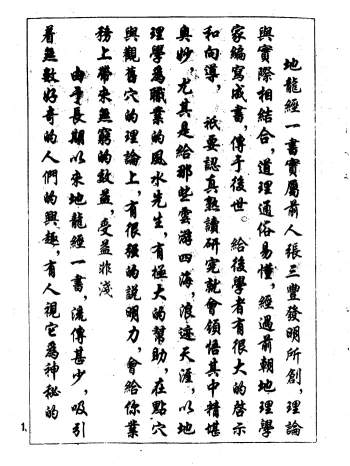 地龍經一書實屬前人張三豐發明所創,理論
與實際相結合,道理通俗易懂,經過前朝地理學
家編寫成書,傳于後世。給後學者有很大的啓示
和向導,祇要認真熟讀研究就會領悟其中精堪
奧妙,尤其是給那些雲游四海,浪迹天涯,以地
理學爲職業的風水先生,有極大的幫助,在點穴
與觀舊穴的理論上,有很强的説明力,會給你業
務上帶來無窮的效益,受益非淺
由于長期以來地龍經一書,流傳甚少,吸引
着無數好奇的人們的興趣,有人視它爲神秘的
1.